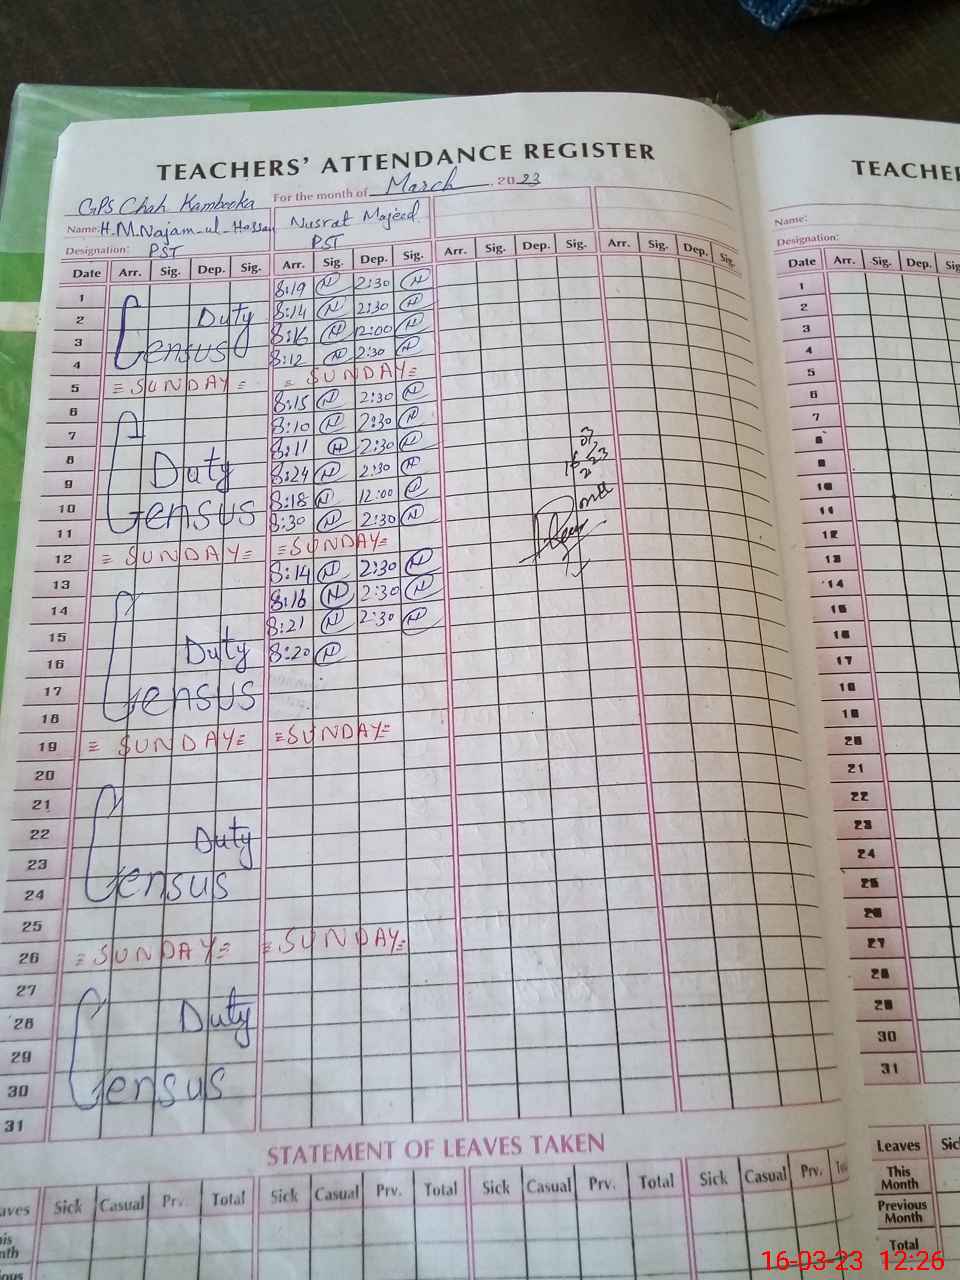 TEACHERS' ATTENDANCE REGISTER
GPS Chah Kambooka For the month of March, 2023
Name: H.M.Najam-ul-Hassan Nusrat Majeed
Designation: PST PST
Date Arr. Sig. Dep. Sig. Arr. Sig. Dep. Sig. Arr. Sig. Dep. Sig. Arr. Sig. Dep. Sig.
1 8:19 N 2:30 N
2 Duty 8:14 N 2:30 N
3 Census 8:16 N 12:00 N
4 8:12 N 2:30 N
5 = SUNDAY = = SUNDAY =
6 8:15 N 2:30 N
7 8:10 N 2:30 N
8 Duty 8:11 N 2:30 N
9 8:24 N 2:30 N
10 Census 8:18 N 12:00 N
11 8:30 N 2:30 N
12 = SUNDAY = = SUNDAY =
13 8:14 N 2:30 N
14 8:16 N 2:30 N
15 8:21 N 2:30 N
16 Duty 8:20 N
17 Census
18
19 = SUNDAY = = SUNDAY =
20
21
22 Duty
23
24 Census
25
26 = SUNDAY = = SUNDAY =
27
28 Duty
29
30 Census
31
STATEMENT OF LEAVES TAKEN
Sick Casual Prv. Total Sick Casual Prv. Total Sick Casual Prv. Total Sick Casual Prv.
TEACHER
Name:
Designation:
Date Arr. Sig. Dep. Sig
1
2
3
4
5
6
7
8
9
10
11
12
13
14
15
16
17
18
19
20
21
22
23
24
25
26
27
28
29
30
31
Leaves Sic
This Month
Previous Month
Total
16-03-23 12:26